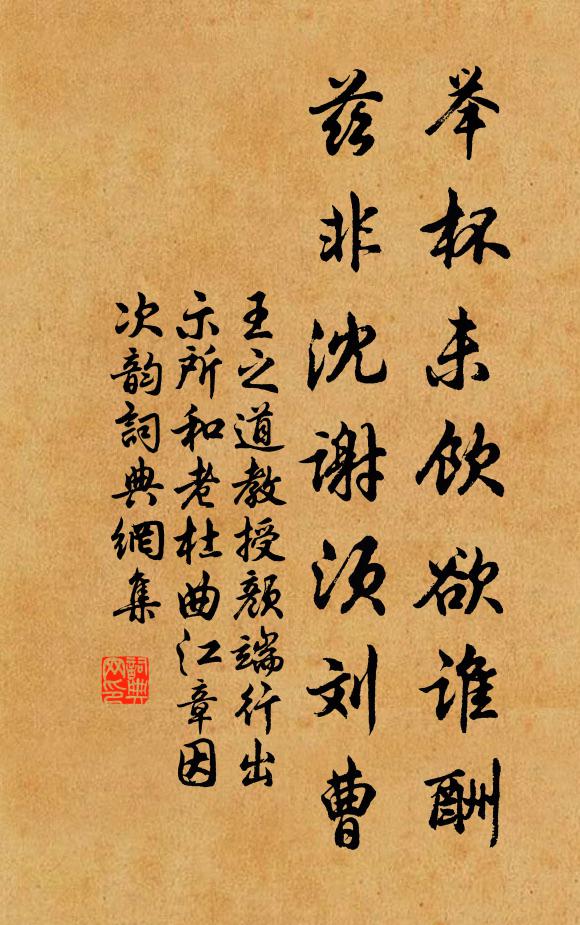 举杯未饮欲谁酬
兹非沈谢须刘曹
王之道教授颜端行出
示所和老杜曲江章因
次韵词典網集
詞典
网印